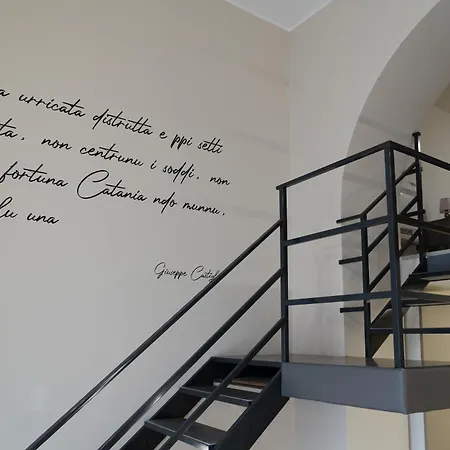 a urricata distrutta e ppi setti
ta, non centrunu i soddi, non
fortuna Catania ndo munnu,
lu una
Giuseppe